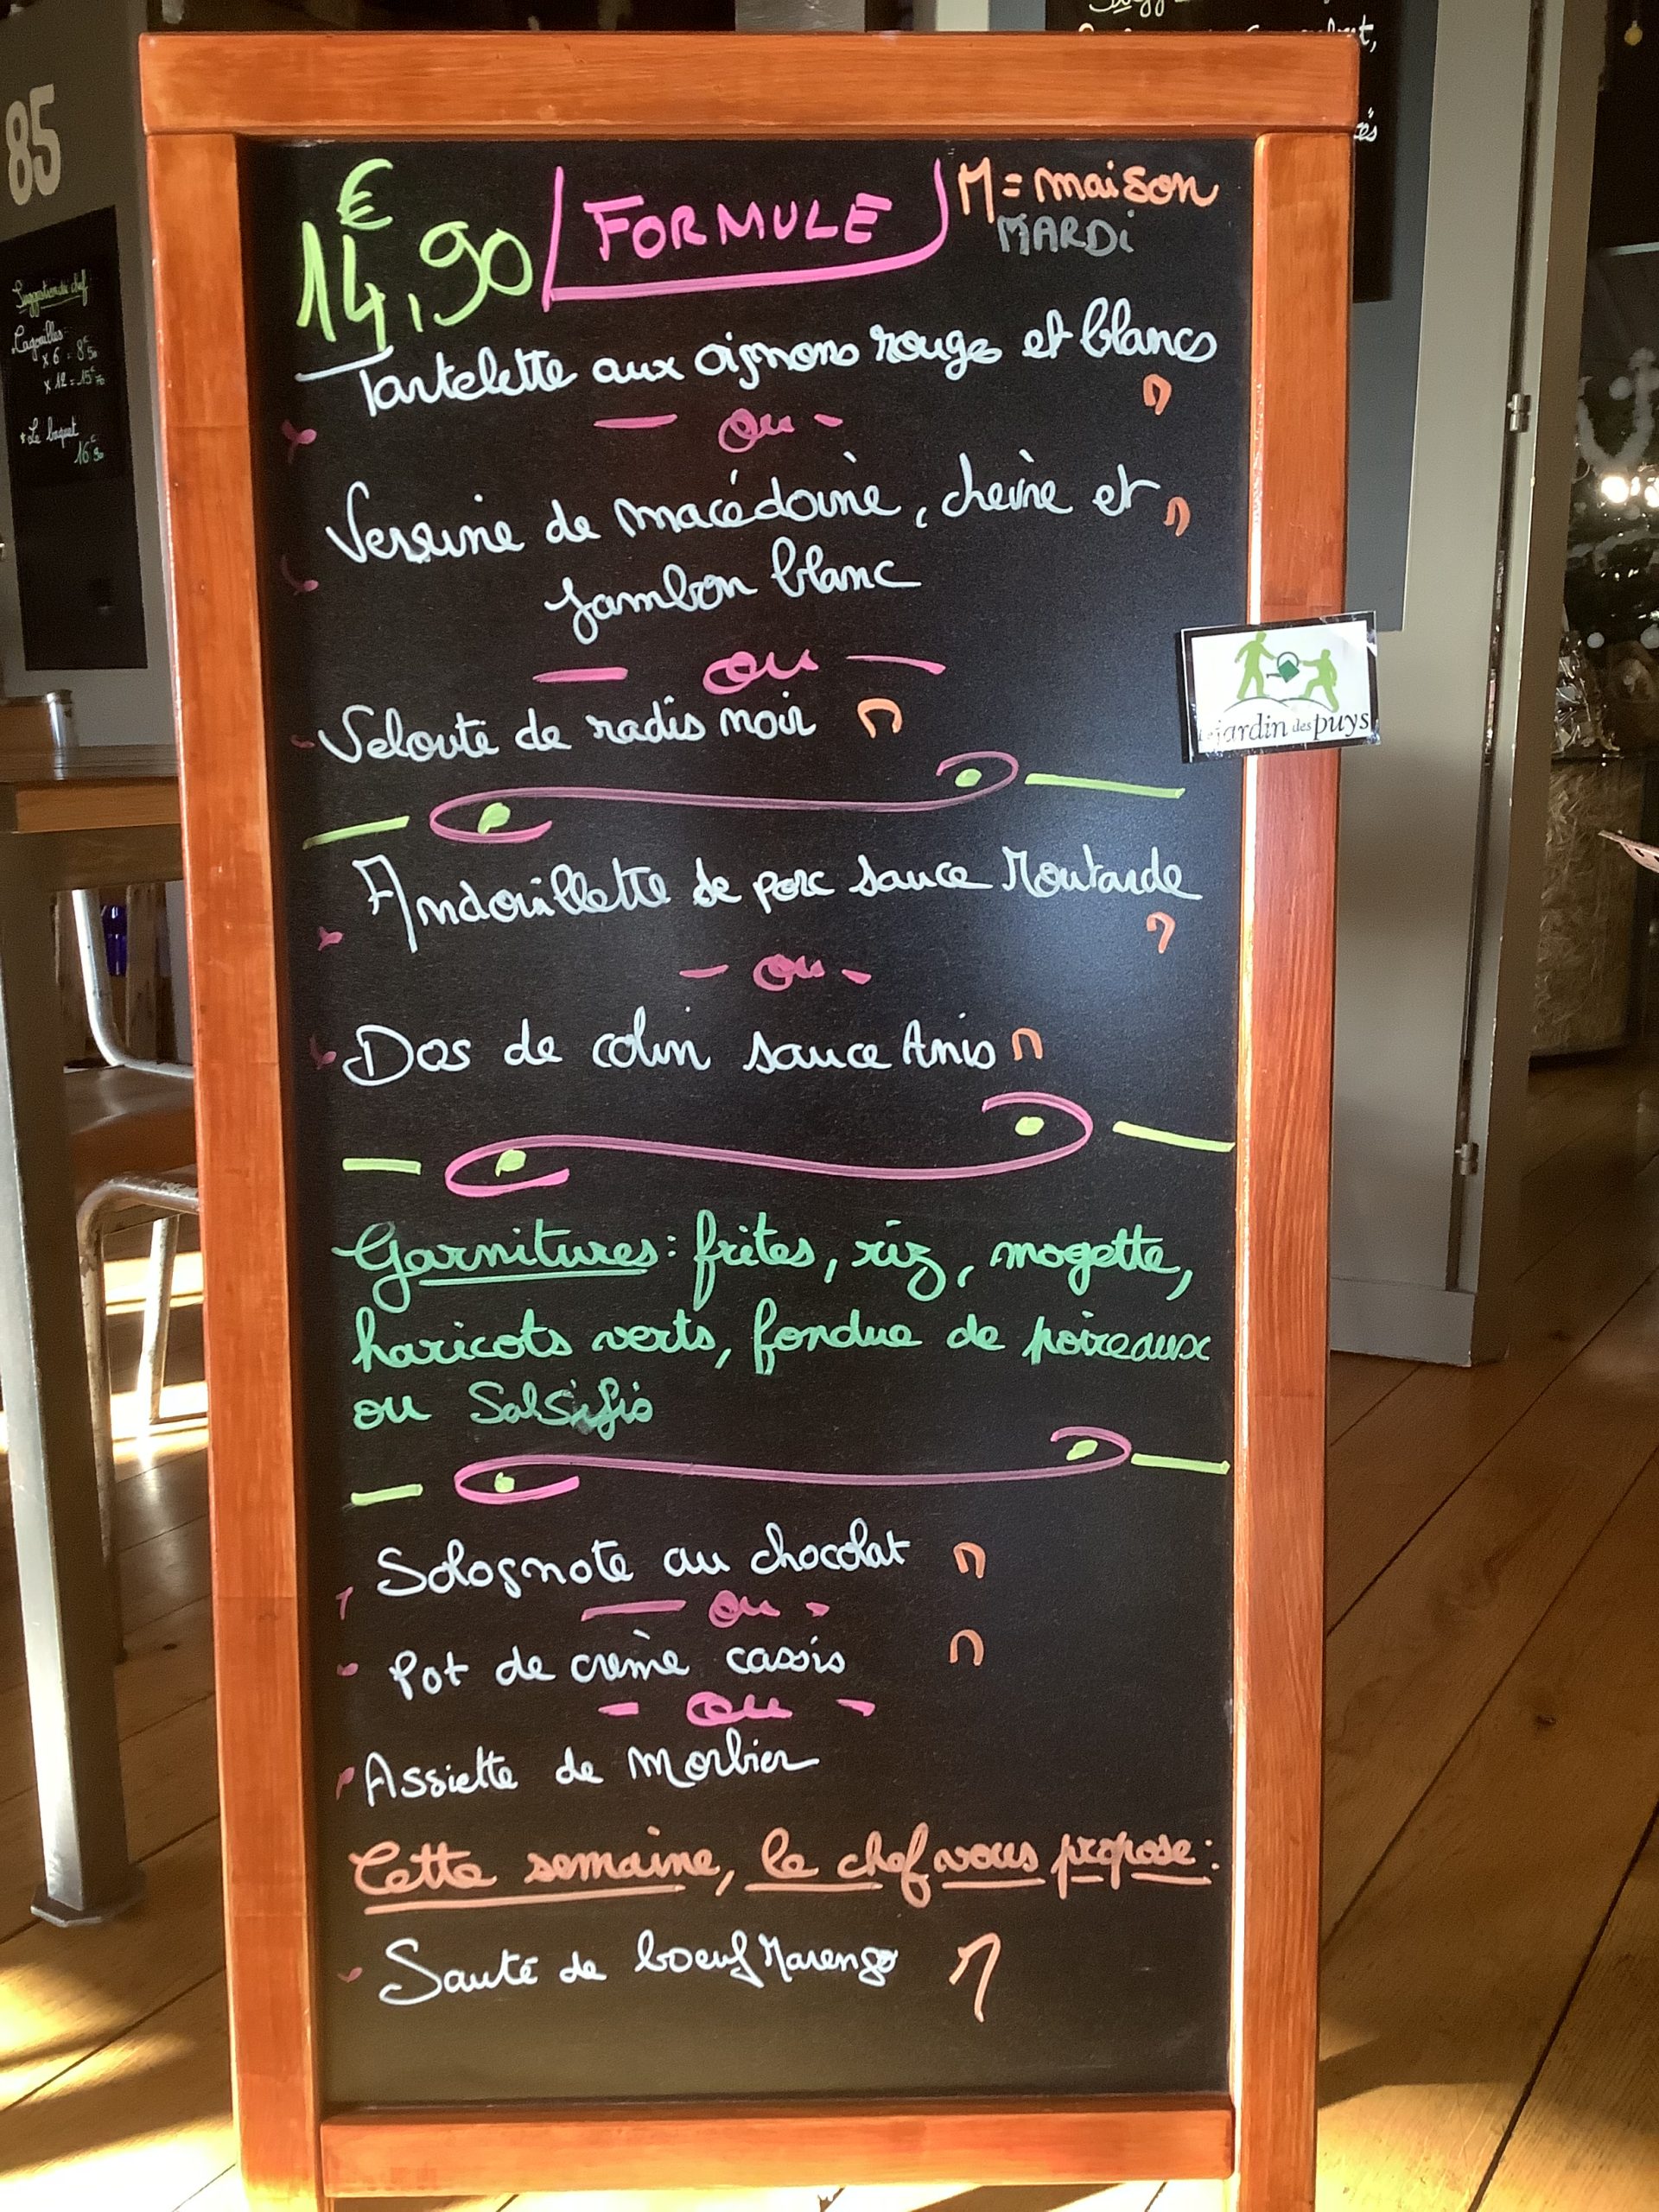 85
Suggestion du chef
Cagouilles
x 6 = 8€50
x 12 = 15€70
* Le baquet
16€90
14€,90 FORMULE M = maison
MARDi
Tartelette aux oignons rouges et blancs
M
- ou -
Verrine de macédoine, chèvre et M
jambon blanc
- ou -
Velouté de radis noir M
Le jardin des puys
Andouillette de porc sauce Moutarde
M
- ou -
Dos de colin sauce Anis M
Garnitures : frites, riz, mogette,
haricots verts, fondue de poireaux
ou Salsifis
Solognote au chocolat M
- ou -
Pot de crème cassis M
- ou -
Assiette de Morbier
Cette semaine, le chef vous propose :
Sauté de boeuf Marengo M